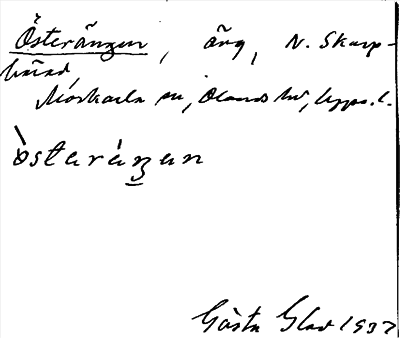 Österängen, äng, N. Skarp-
bäind,
Morkarla sn, Olands hd, Upps. l.
òstaráŋan
Gösta Glad 1937